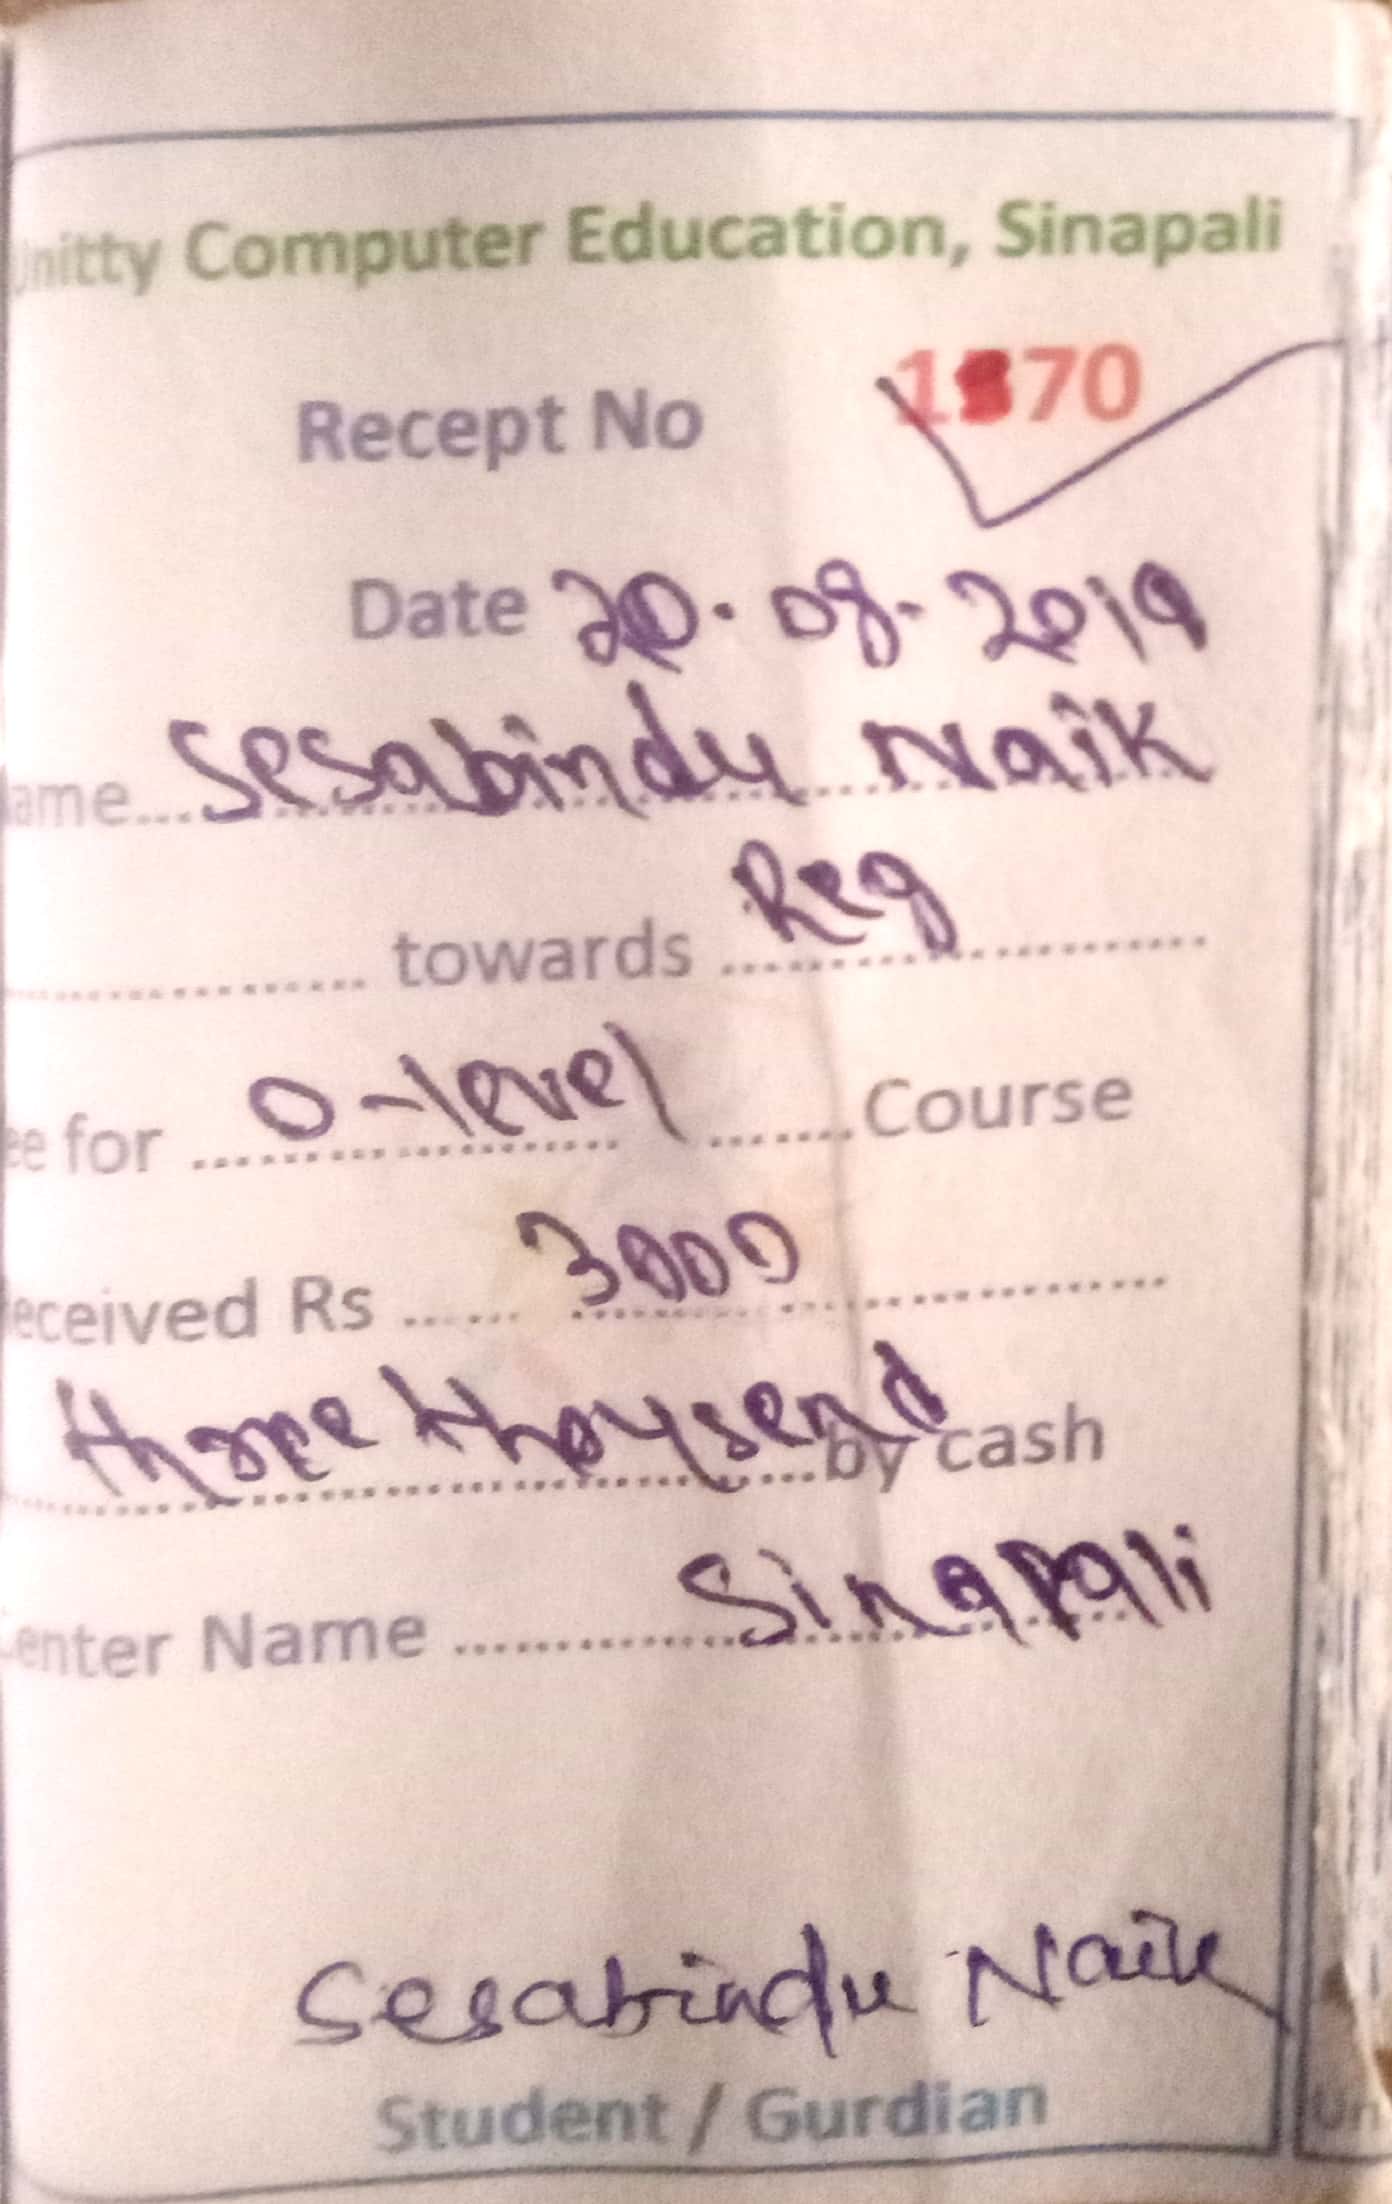 Unitty Computer Education, Sinapali
Recept No
Date 20.08.2019
ame... Sesabindu Naik
towards Reg
ee for O-level Course
eceived Rs 3000
three thousend by cash
enter Name Sinapali
Sesabindu Naik
Student / Gurdian